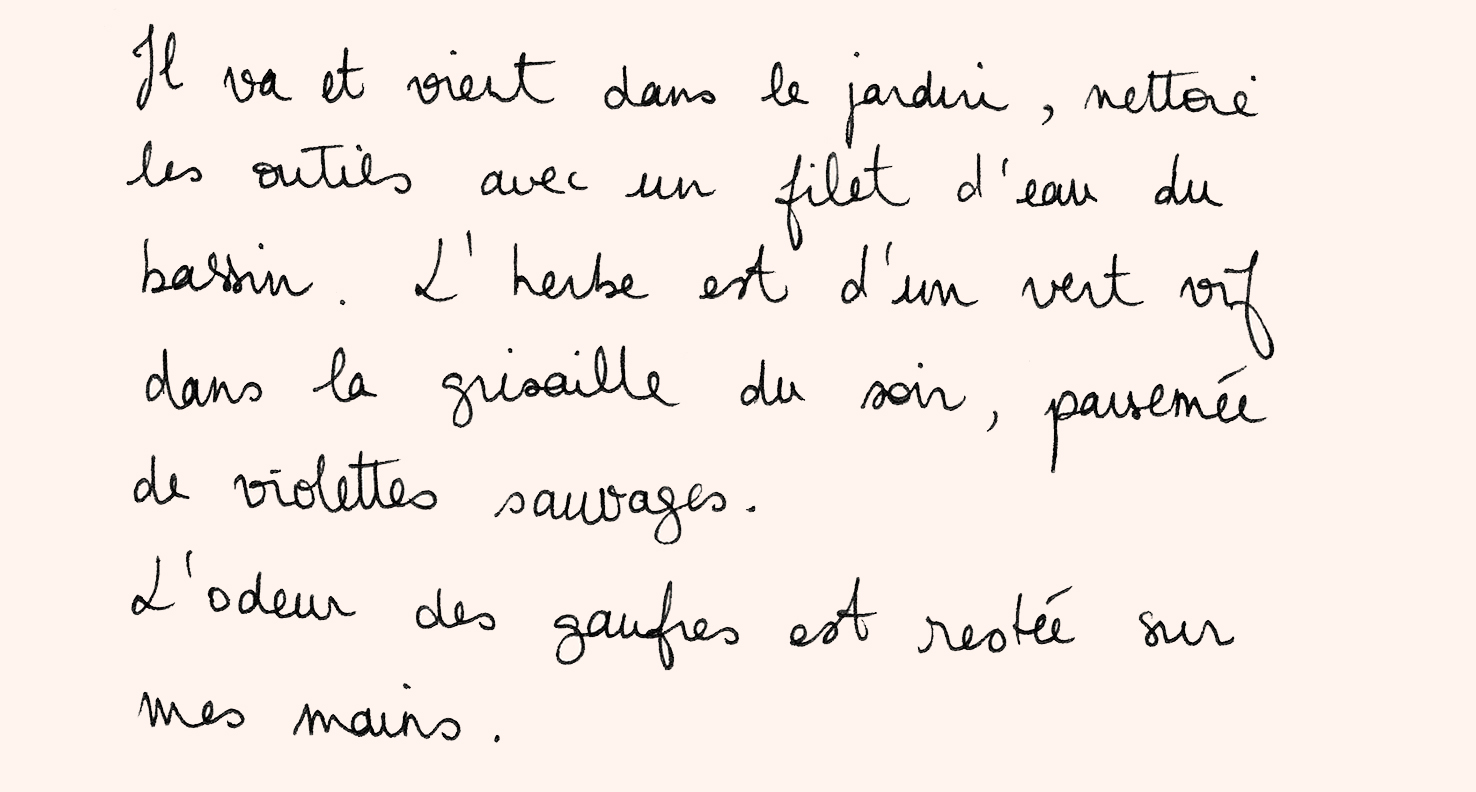 Il va et vient dans le jardin, nettoie
les outils avec un filet d'eau du
bassin. L'herbe est d'un vert vif
dans la grisaille du soir, parsemée
de violettes sauvages.
L'odeur des gaufres est restée sur
mes mains.